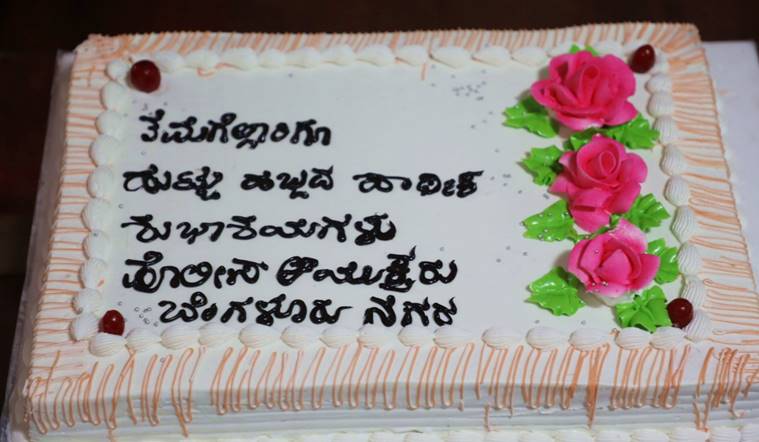 ತಮಗೆಲ್ಲರಿಗೂ
ಹುಟ್ಟು ಹಬ್ಬದ ಹಾರ್ಧಿಕ
ಶುಭಾಶಯಗಳು
ಪೊಲೀಸ್ ಆಯುಕ್ತರು
ಬೆಂಗಳೂರು ನಗರ